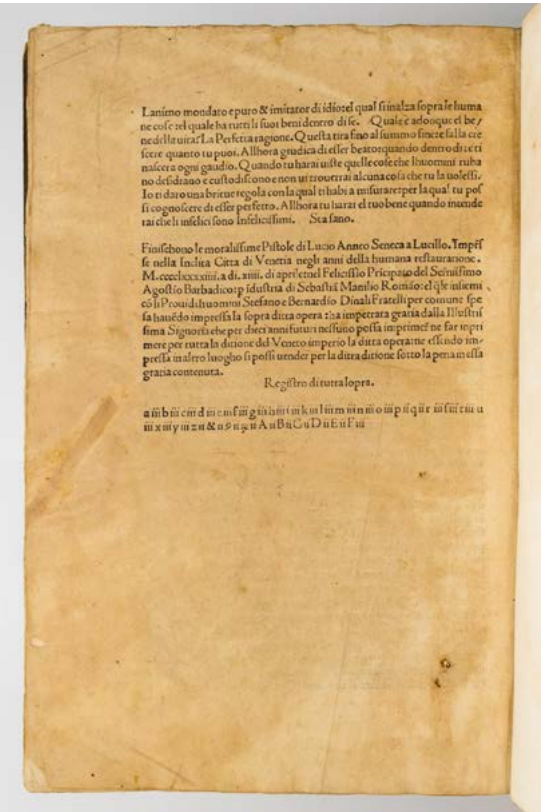 Lanimo mondato e puro & imitator di idio:el qual si inalza sopra le huma
ne cose :el quale ha tutti li suoi beni dentro di se. Quale e adonque el be/
ne della uita? La Perfetta ragione. Questa tira fino al summo fine:e falla cre
scere quanto tu puoi. Allhora giudica di esser beato:quando dentro di te ti
nascera ogni gaudio. Quando tu harai uiste quelle cose che lhuomini ruba
no desidrano e custodiscono e non ui trouerrai alcuna cosa che tu la uolessi.
Io ti daro una brieue regola con la qual ti habi a misurare:per la qual tu pos
si cognoscere di esser perfetto. Allhora tu harai el tuo bene quando intende
rai che li infelici sono Infelicissimi. Sta sano.
Finischono le moralissime Pistole di Lucio Anneo Seneca a Lucillo. Impres
se nella Inclita Citta di Venetia negli anni della humana restauratione.
M.cccclxxxxiiii.a di .xiiii. di aprile:nel Felicissio Pricipato del Serinissimo
Agostio Barbadico:p idustria di Sebastia Manilio Romão:el qle insiemi
cõ li Prouidi huomini Stefano e Bernardio Dinali Fratelli per comune spe
sa hauẽdo impressa la sopra ditta opera :ha impetrata gratia dalla Illustris
sima Signoria che per dieci anni futuri nessuno possa imprimer ne far inpri
mere per tutta la ditione del Veneto imperio la ditta opera:ne essendo im-
pressa in altro luogho si possi uender per la ditta ditione sotto la pena in essa
gratia contenuta.
Registro di tutta lopra.
a iii b iii c iii d iii e iii f iii g iii h iii i iii k iii l iii m iii n iii o iii p ii q ii r iii s iii t iii u
iii x iii y iii z ii & ii A ii B ii C ii D ii E ii F iii